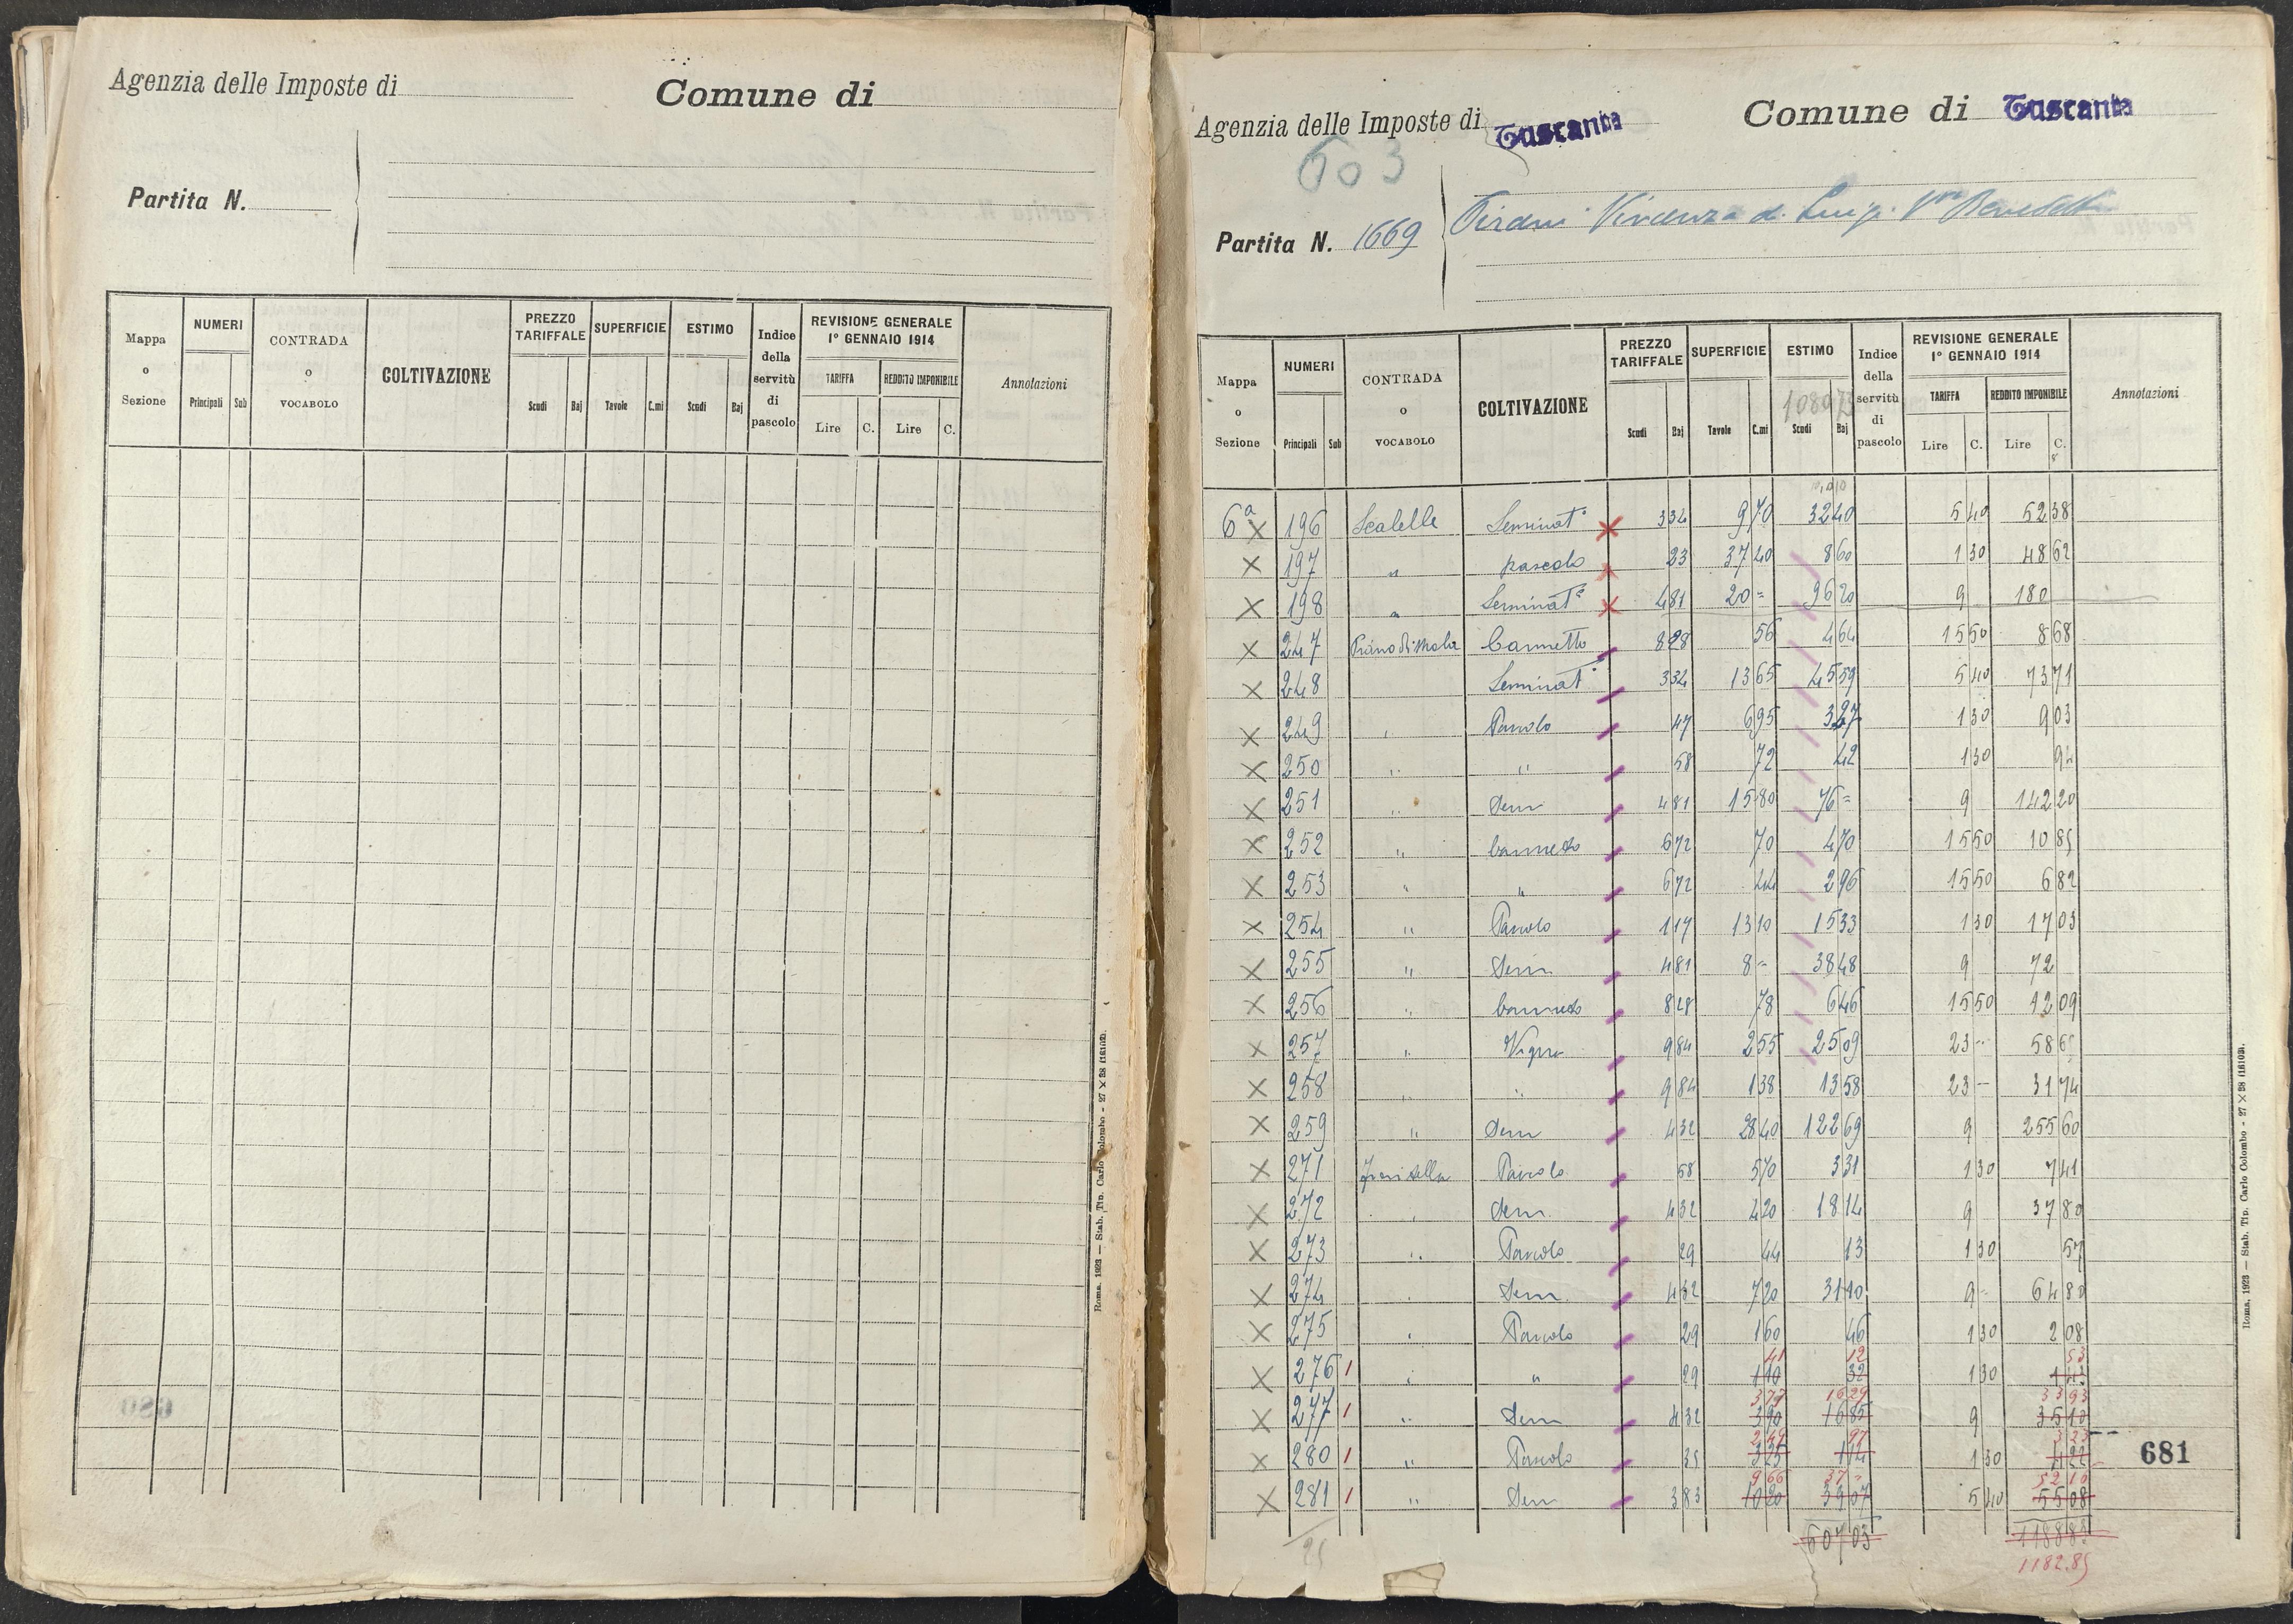 Agenzia delle Imposte di
Comune di
Partita N.
Mappa o Sezione
NUMERI
Principali Sub
CONTRADA o VOCABOLO
COLTIVAZIONE
PREZZO TARIFFALE
Scudi Baj
SUPERFICIE
Tavole C.mi
ESTIMO
Scudi Baj
Indice della servitù di pascolo
REVISIONE GENERALE
1° GENNAIO 1914
TARIFFA
Lire C.
REDDITO IMPONIBILE
Lire C.
Annotazioni
Roma, 1923 — Stab. Tip. Carlo Colombo - 27 × 38 (16102).
Agenzia delle Imposte di Tuscania
Comune di Tuscania
603
Partita N. 1669
Vincenza di Luigi
Mappa o Sezione
NUMERI
Principali Sub
CONTRADA o VOCABOLO
COLTIVAZIONE
PREZZO TARIFFALE
Scudi Baj
SUPERFICIE
Tavole C.mi
ESTIMO
Scudi Baj
Indice della servitù di pascolo
REVISIONE GENERALE
1° GENNAIO 1914
TARIFFA
Lire C.
REDDITO IMPONIBILE
Lire C.
Annotazioni
6a X 196 Scalelle Seminat° X 3 34 9 70 32 40 5 40 52 38
X 197 " pascolo X 23 37 40 8 60 1 30 48 62
X 198 " Seminat° X 4 81 20 = 96 20 9 180
X 247 Piano di Mola Cannetto 8 28 56 4 64 15 50 8 68
X 248 Seminat° 3 34 13 65 45 59 5 40 73 71
X 249 " Pascolo 47 6 95 3 27 1 30 9 03
X 250 " " 58 72 42 1 30 94
X 251 " Sem 4 81 15 80 76 = 9 142 20
X 252 " Canneto 6 72 70 4 70 15 50 10 85
X 253 " " 6 72 44 2 96 15 50 6 82
X 254 " Pascolo 1 17 13 10 15 33 1 30 17 03
X 255 " Sem 4 81 8 = 38 48 9 72
X 256 " Canneto 8 28 78 6 46 15 50 12 09
X 257 " Vigna 9 84 2 55 25 09 23 = 58 65
X 258 " " 9 84 1 38 13 58 23 — 31 74
X 259 " Sem 4 32 28 40 122 69 9 255 60
X 271 Pascolo 58 5 70 3 31 1 30 7 41
X 272 " Sem 4 32 4 20 18 14 9 37 80
X 273 " Pascolo 29 44 13 1 30 57
X 274 " Sem 4 32 7 20 31 10 9 = 64 80
X 275 " Pascolo 29 1 60 46 1 30 2 08
41 12 53
X 276 1 " " 29 1 10 32 1 30 1 43
3 77 16 29 33 93
X 277 1 " Sem 4 32 3 90 16 85 9 35 10
2 49 97 3 23
X 280 1 " Pascolo 35 3 25 1 14 1 30 4 22
9 66 37 = 52 16
X 281 1 " Sem 3 83 10 20 39 07 5 40 55 08
681
25
607 03
1182.85
Roma, 1923 — Stab. Tip. Carlo Colombo - 27 × 38 (16102).